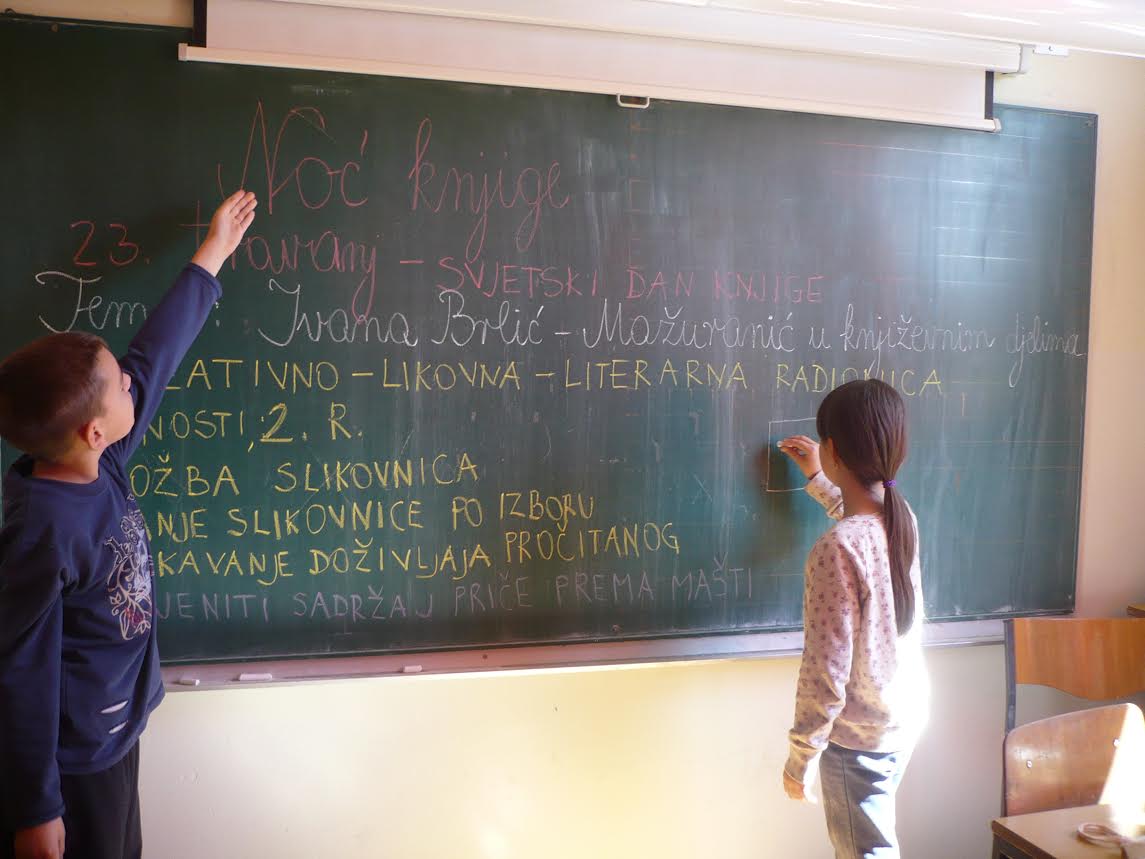 Noć knjige
23. travanj - SVJETSKI DAN KNJIGE
Tem : Ivana Brlić - Mažuranić u književnim djelima
LATIVNO - LIKOVNA - LITERARNA RADIONICA
NOSTI, 2. R.
OŽBA SLIKOVNICA
ANJE SLIKOVNICE PO IZBORU
KAVANJE DOŽIVLJAJA PROČITANOG
JENITI SADRŽAJ PRIČE PREMA MAŠTI